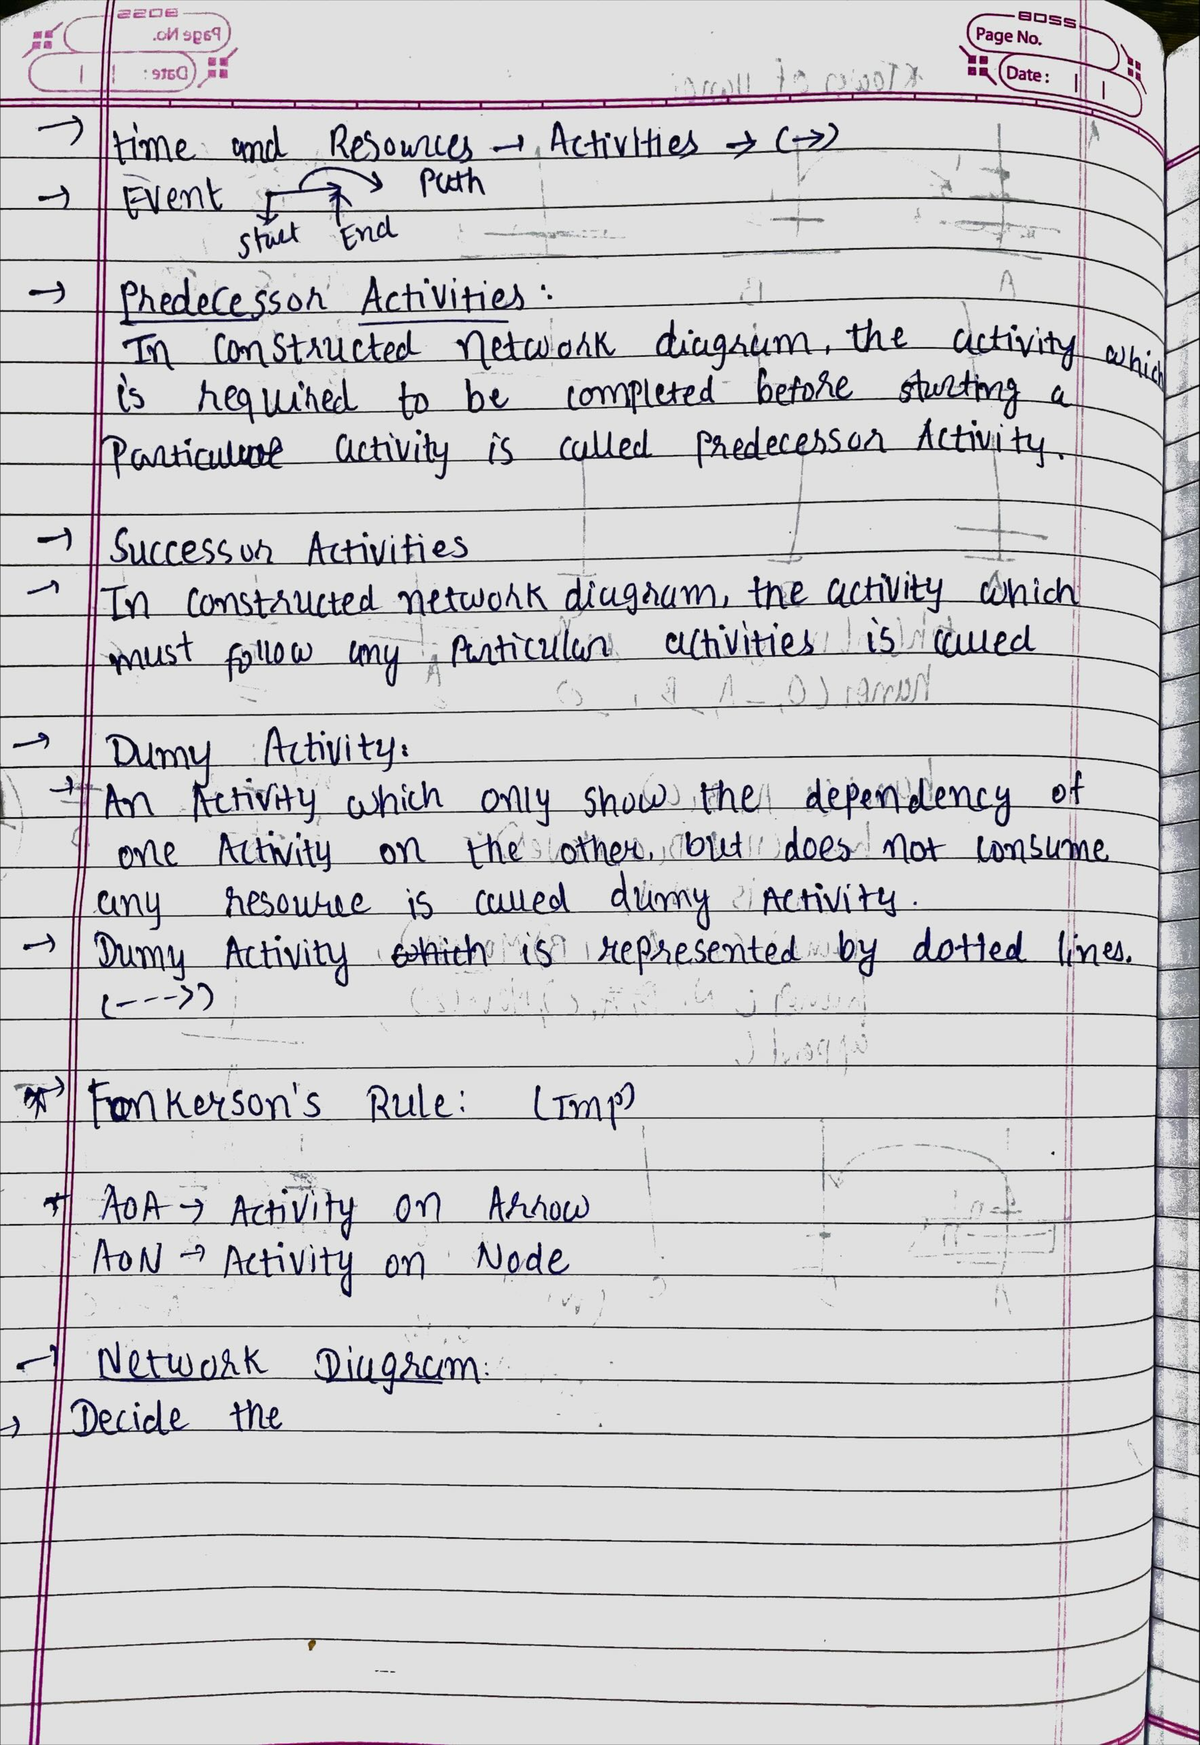 BOSS
Page No.
Date:
→ time and Resources → Activities → (→)
→ Event Path
Start End
→ Predecessor Activities:
In constructed network diagram, the activity which
is required to be completed before starting a
Particular activity is called predecessor Activity.
→ Successor Activities
→ In constructed network diagram, the activity which
must follow any Particular activities is called
→ Dumy Activity:
→ An Activity which only show the dependency of
one Activity on the other, but does not consume
any resource is called dumy Activity.
→ Dumy Activity which is represented by dotted lines.
(--->)
* → Fonkerson's Rule: (Imp)
+ AOA → Activity on Arrow
AON → Activity on Node
→ Network Diagram:
→ Decide the